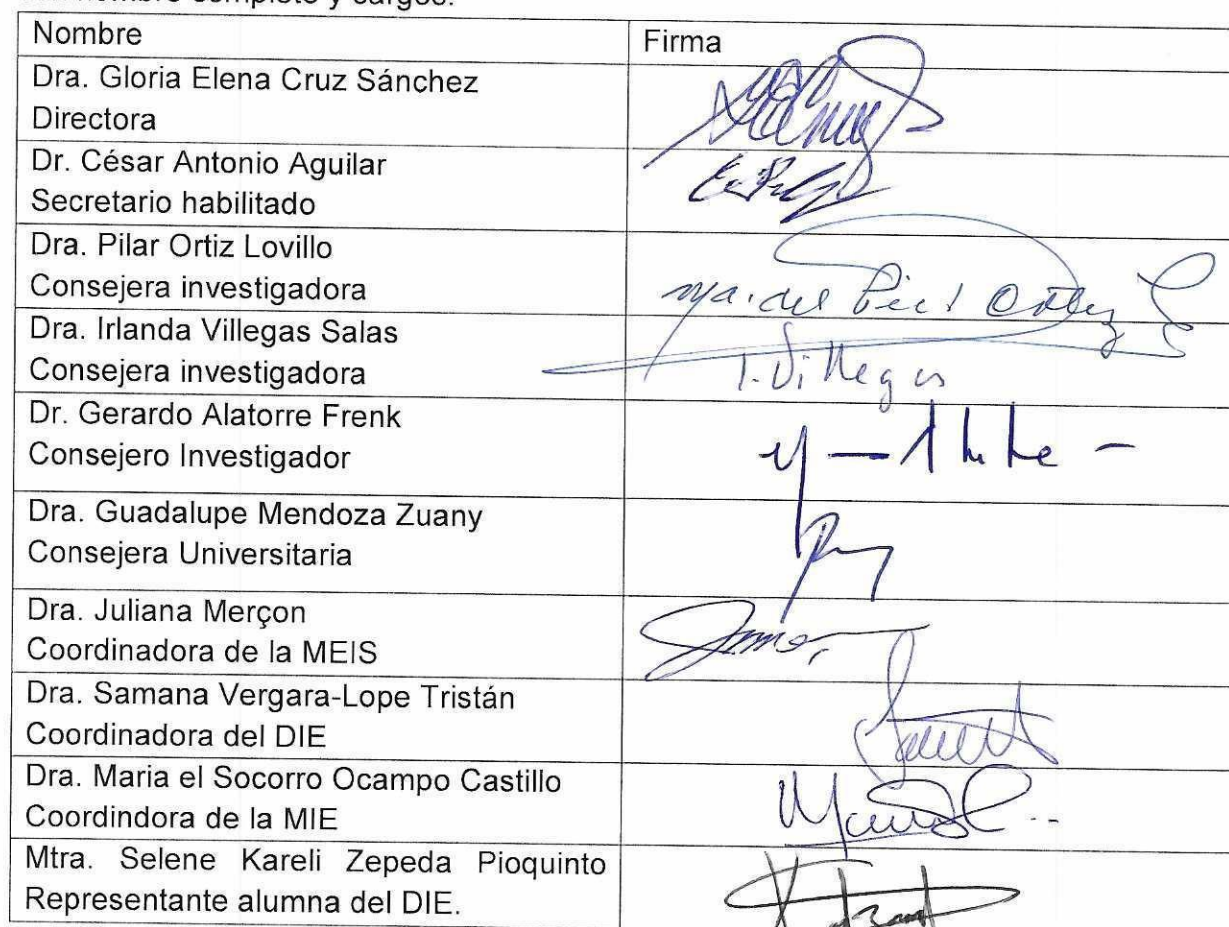 nombre completo y cargos.
Nombre
Firma
Dra. Gloria Elena Cruz Sánchez
Directora
Dr. César Antonio Aguilar
Secretario habilitado
Dra. Pilar Ortiz Lovillo
Consejera investigadora
Ma. del Pilar Ortiz L
Dra. Irlanda Villegas Salas
Consejera investigadora
I. Villegas
Dr. Gerardo Alatorre Frenk
Consejero Investigador
Dra. Guadalupe Mendoza Zuany
Consejera Universitaria
Dra. Juliana Merçon
Coordinadora de la MEIS
Dra. Samana Vergara-Lope Tristán
Coordinadora del DIE
Dra. Maria el Socorro Ocampo Castillo
Coordindora de la MIE
Mtra. Selene Kareli Zepeda Pioquinto
Representante alumna del DIE.